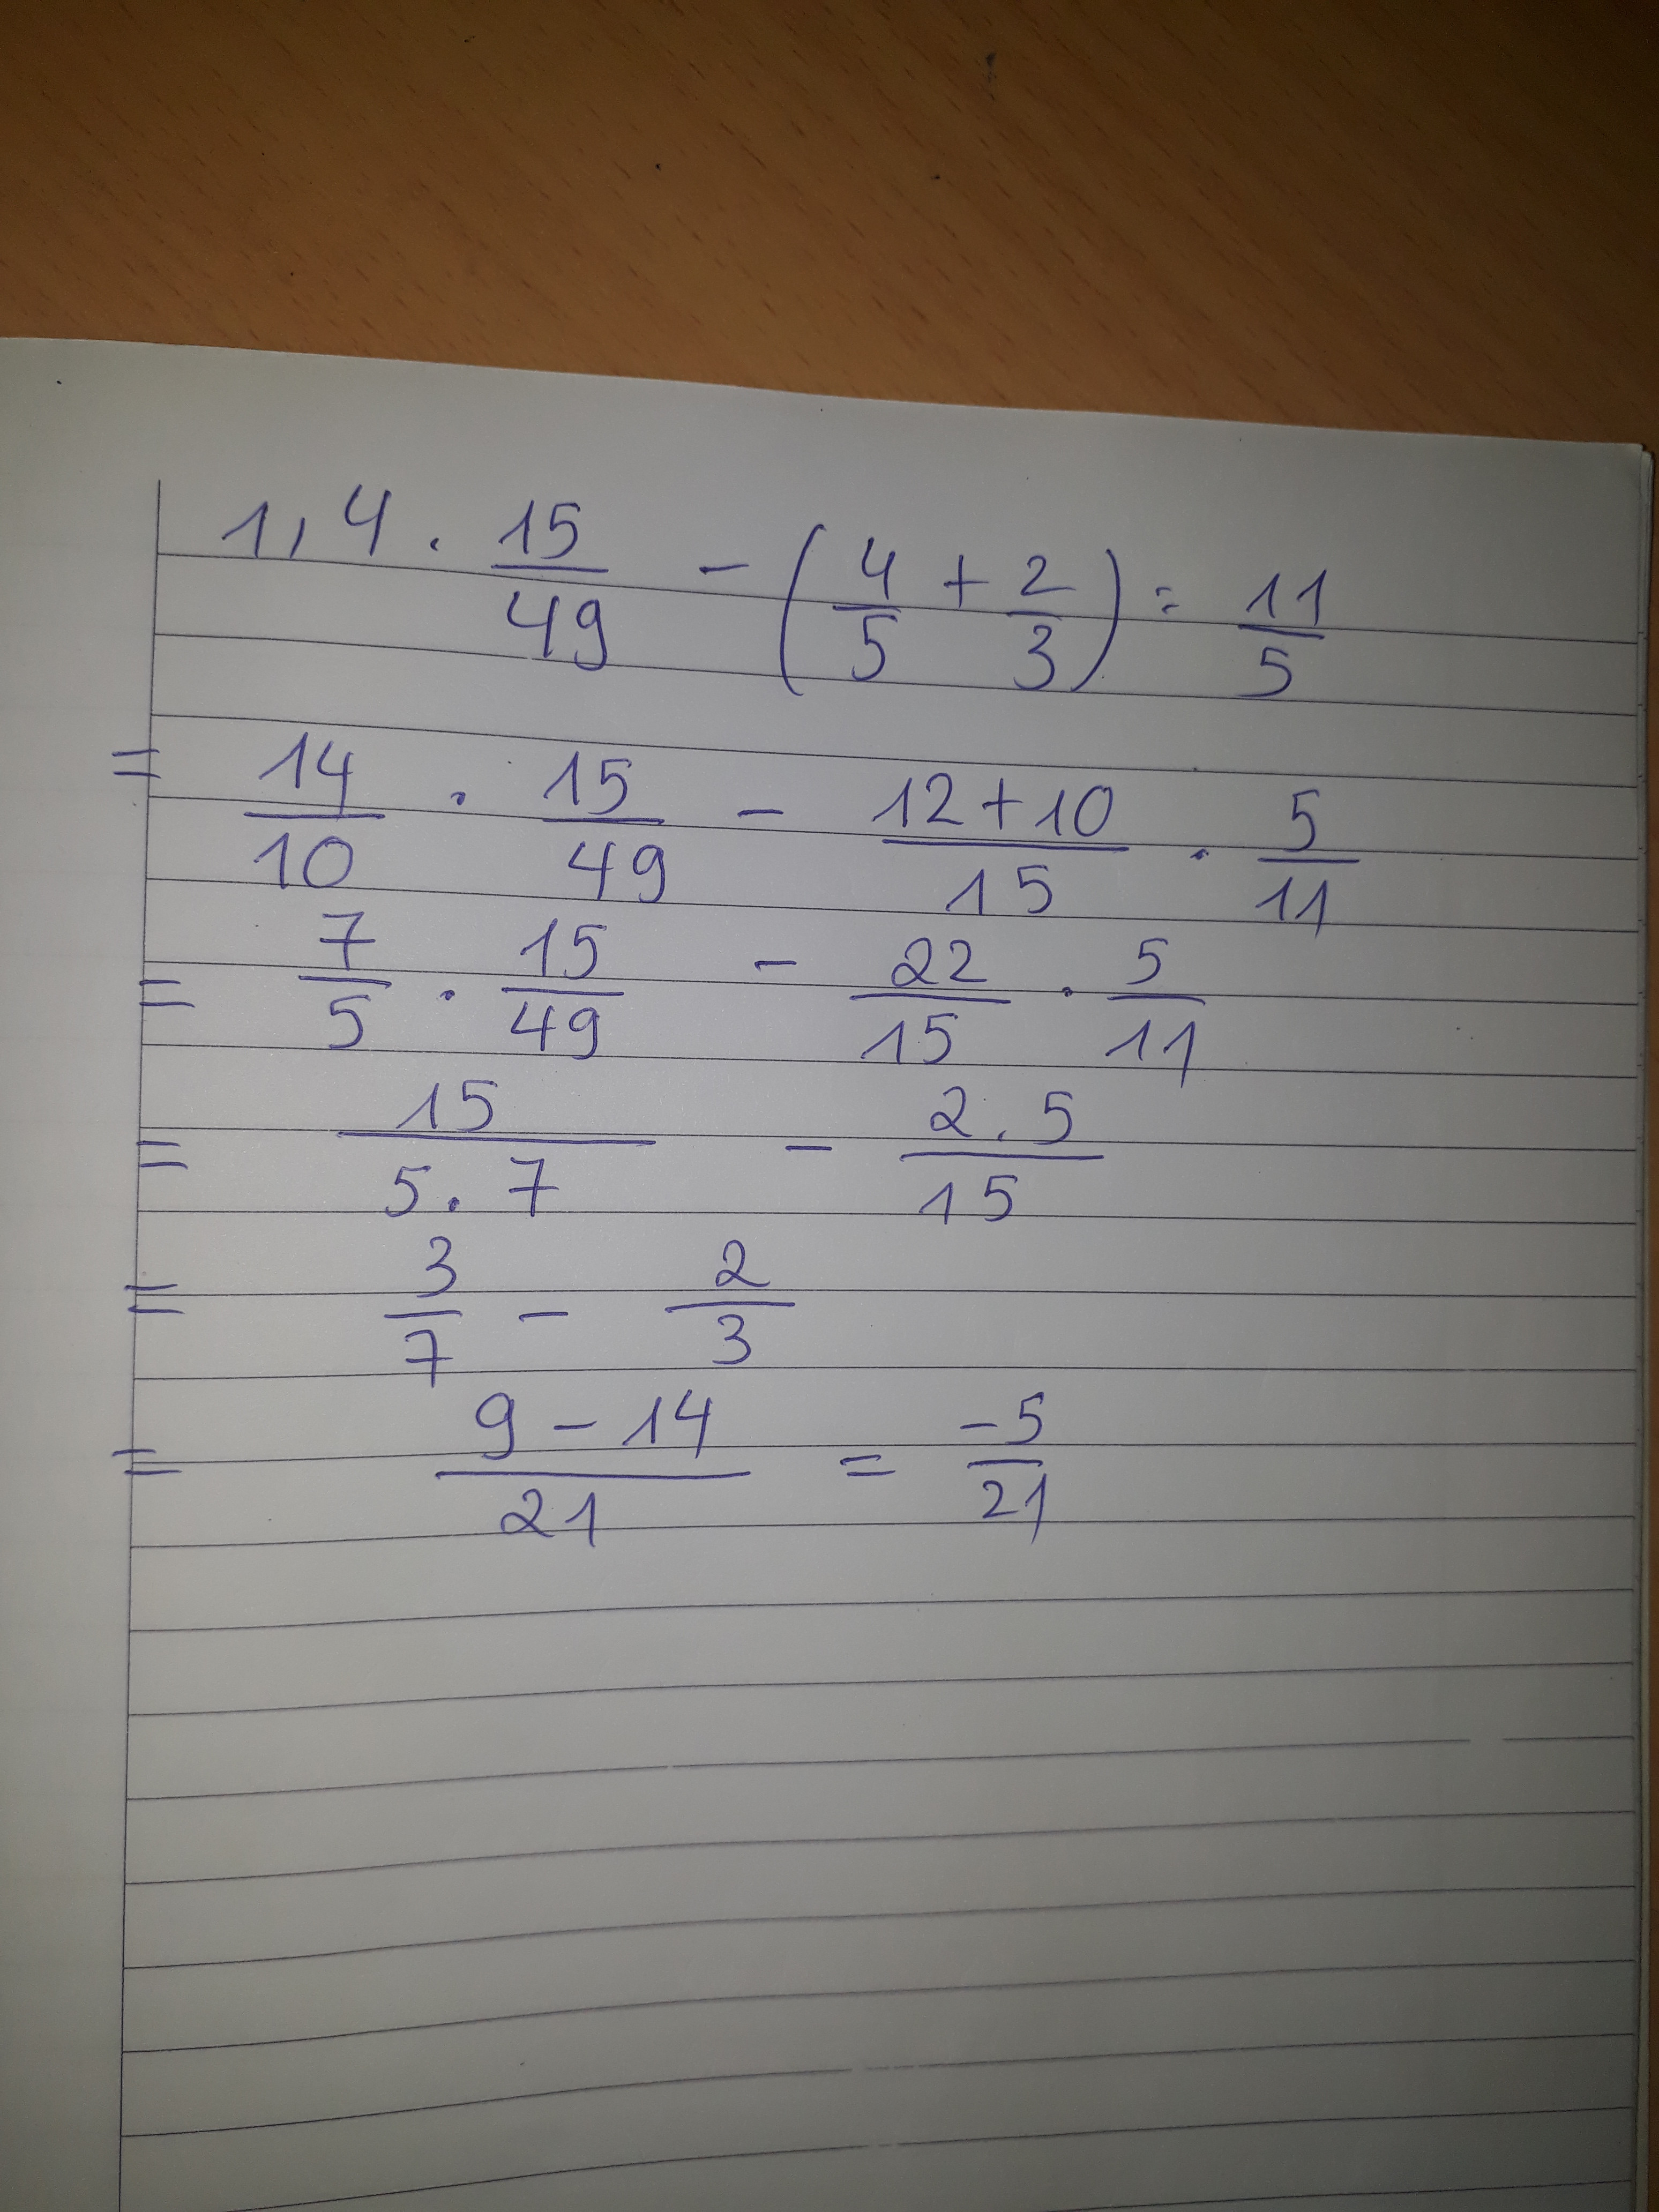 1,4 . 15/49 - (4/5 + 2/3) : 11/5
= 14/10 . 15/49 - (12+10)/15 . 5/11
= 7/5 . 15/49 - 22/15 . 5/11
= 15/(5.7) - (2.5)/15
= 3/7 - 2/3
= (9-14)/21 = -5/21